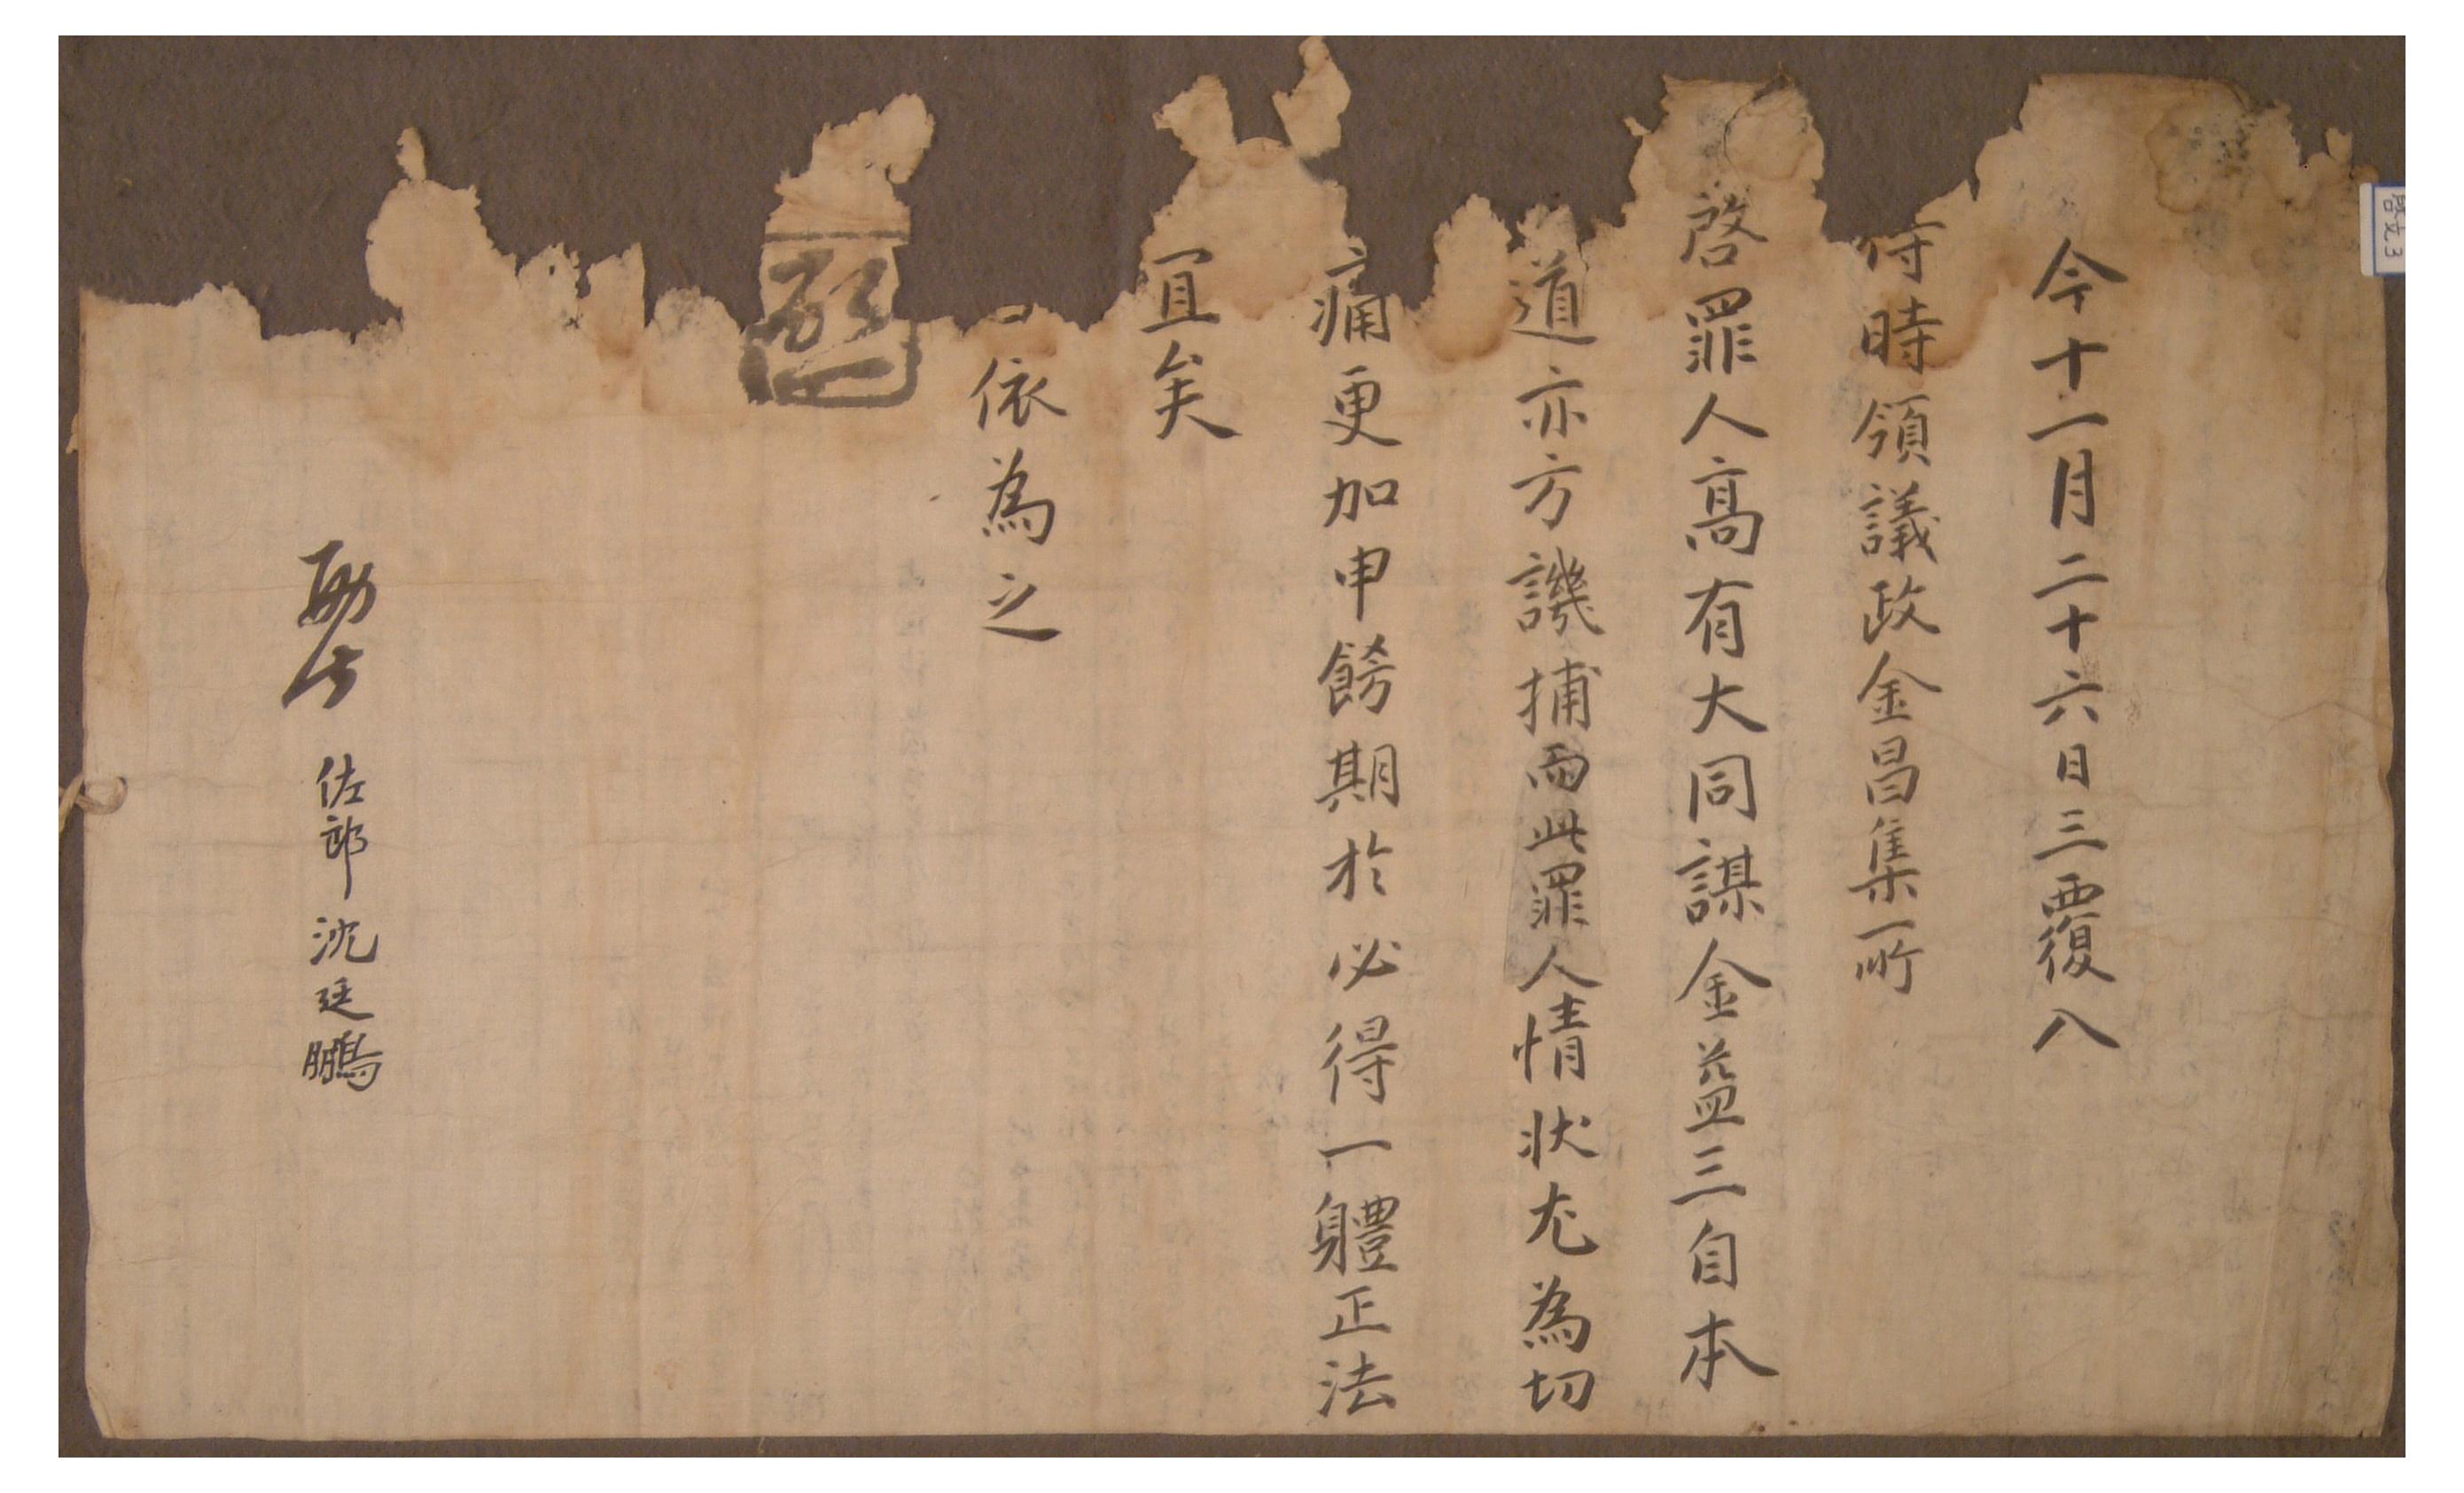 今十一月二十六日三覆入
侍時領議政金昌集所
啓罪人高有大同謀金益三自本
道亦方譏捕而此罪人情狀尤為切
痛更加申飭期於必得一軆正法
宜矣
依為之
啓
佐郎沈廷鵬